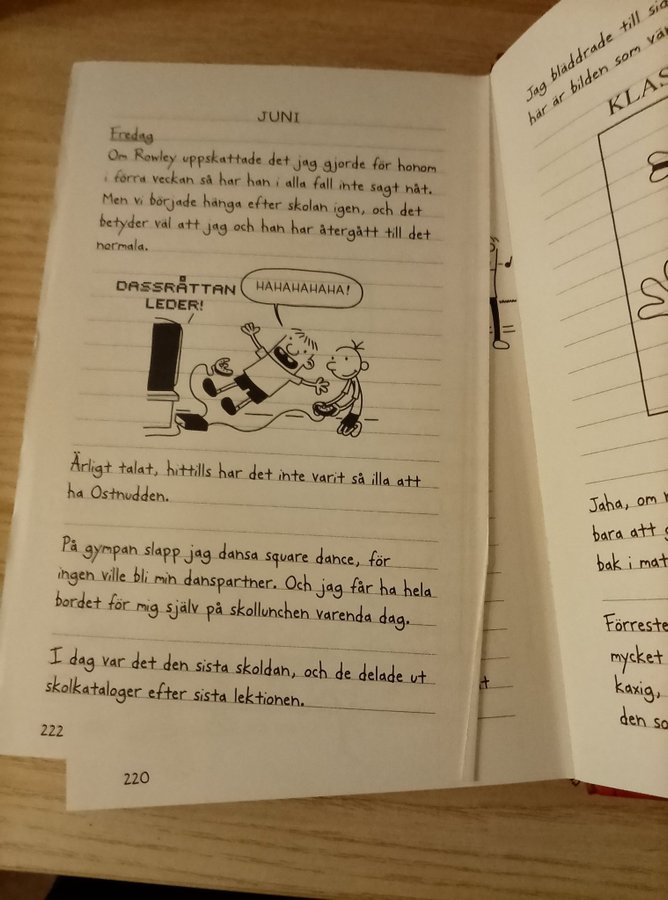 JUNI
Fredag
Om Rowley uppskattade det jag gjorde för honom
i förra veckan så har han i alla fall inte sagt nåt.
Men vi började hänga efter skolan igen, och det
betyder väl att jag och han har återgått till det
normala.
DASSRÅTTAN
LEDER!
HAHAHAHAHA!
Ärligt talat, hittills har det inte varit så illa att
ha Ostnudden.
På gympan slapp jag dansa square dance, för
ingen ville bli min danspartner. Och jag får ha hela
bordet för mig själv på skollunchen varenda dag.
I dag var det den sista skoldan, och de delade ut
skolkataloger efter sista lektionen.
222
220
Jag bläddrade till
här är bilden som
Jaha, om
bara att
bak i
mycket
kaxig,
den